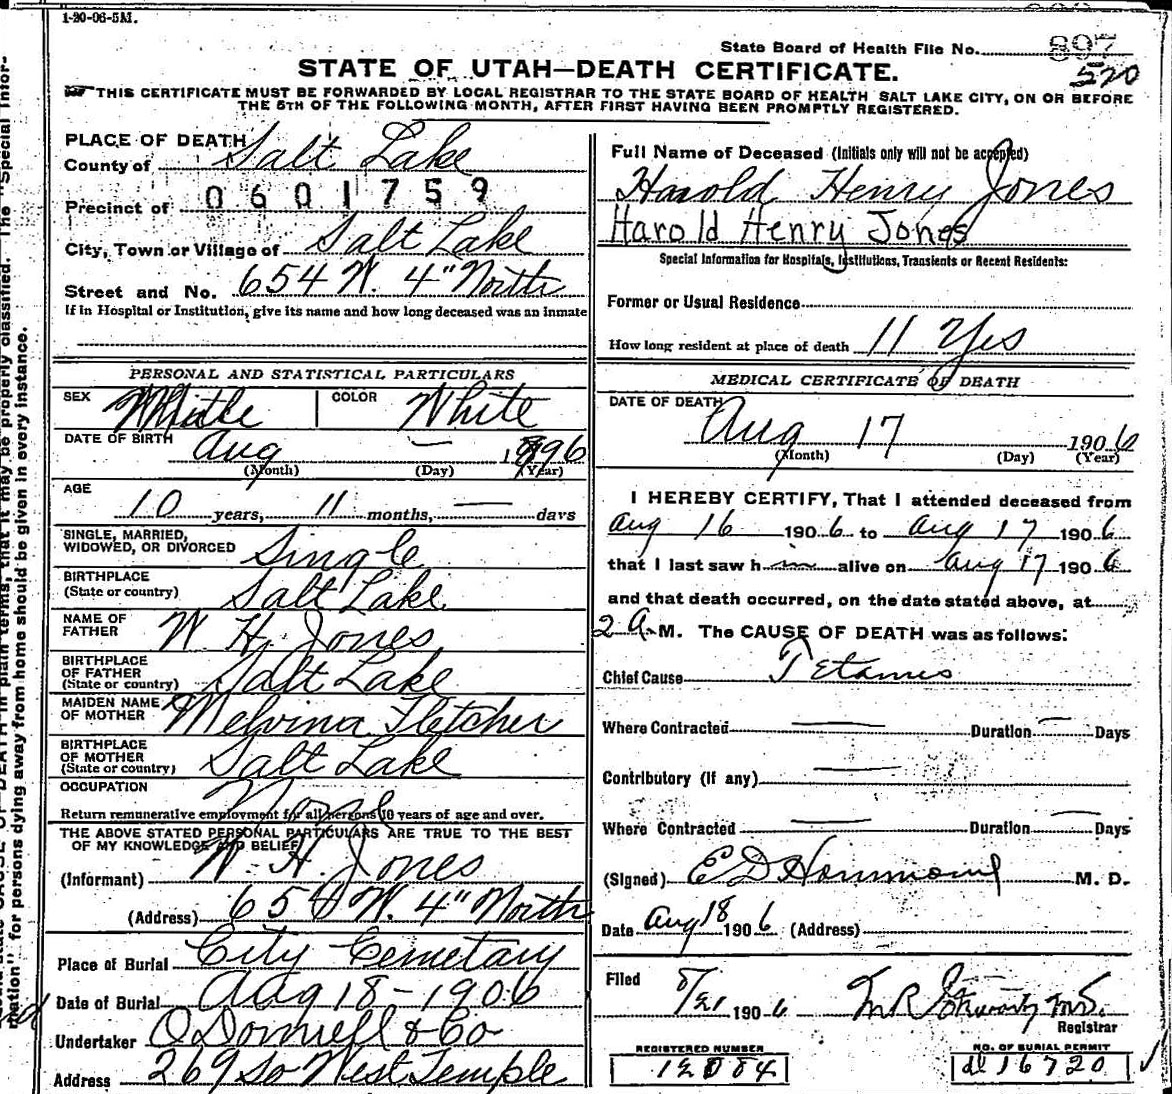 1-20-06-5M.
State Board of Health File No. 807
520
STATE OF UTAH—DEATH CERTIFICATE.
THIS CERTIFICATE MUST BE FORWARDED BY LOCAL REGISTRAR TO THE STATE BOARD OF HEALTH SALT LAKE CITY, ON OR BEFORE
THE 5TH OF THE FOLLOWING MONTH, AFTER FIRST HAVING BEEN PROMPTLY REGISTERED.
PLACE OF DEATH
County of Salt Lake
Precinct of 0601759
City, Town or Village of Salt Lake
Street and No. 654 W. 4" North
If in Hospital or Institution, give its name and how long deceased was an inmate
PERSONAL AND STATISTICAL PARTICULARS
SEX COLOR White
DATE OF BIRTH Aug — 1896
(Month) (Day) (Year)
AGE
10 years, 11 months, — days
SINGLE, MARRIED,
WIDOWED, OR DIVORCED Single
BIRTHPLACE
(State or country) Salt Lake
NAME OF
FATHER W. H. Jones
BIRTHPLACE
OF FATHER
(State or country) Salt Lake
MAIDEN NAME
OF MOTHER Melvina Fletcher
BIRTHPLACE
OF MOTHER
(State or country) Salt Lake
OCCUPATION
Return remunerative employment for all persons 10 years of age and over.
THE ABOVE STATED PERSONAL PARTICULARS ARE TRUE TO THE BEST
OF MY KNOWLEDGE AND BELIEF
(Informant) W. H. Jones
(Address) 654 W. 4" North
Place of Burial City Cemetary
Date of Burial Aug 18-1906
Undertaker O'Donnell & Co
Address 269 So West Temple
Full Name of Deceased (Initials only will not be accepted)
Harold Henry Jones
Harold Henry Jones
Special Information for Hospitals, Institutions, Transients or Recent Residents:
Former or Usual Residence
How long resident at place of death 11 Yes
MEDICAL CERTIFICATE OF DEATH
DATE OF DEATH
Aug 17 1906
(Month) (Day) (Year)
I HEREBY CERTIFY, That I attended deceased from
Aug 16 1906 to Aug 17 1906
that I last saw him alive on Aug 17 1906
and that death occurred, on the date stated above, at
2 A. M. The CAUSE OF DEATH was as follows:
Chief Cause Tetanus
Where Contracted — Duration — Days
Contributory (if any) —
Where Contracted — Duration — Days
(Signed) E D Hammond M. D.
Date Aug 18 1906 (Address)
Filed 8/21 1906
Registrar
REGISTERED NUMBER
NO. OF BURIAL PERMIT
16720